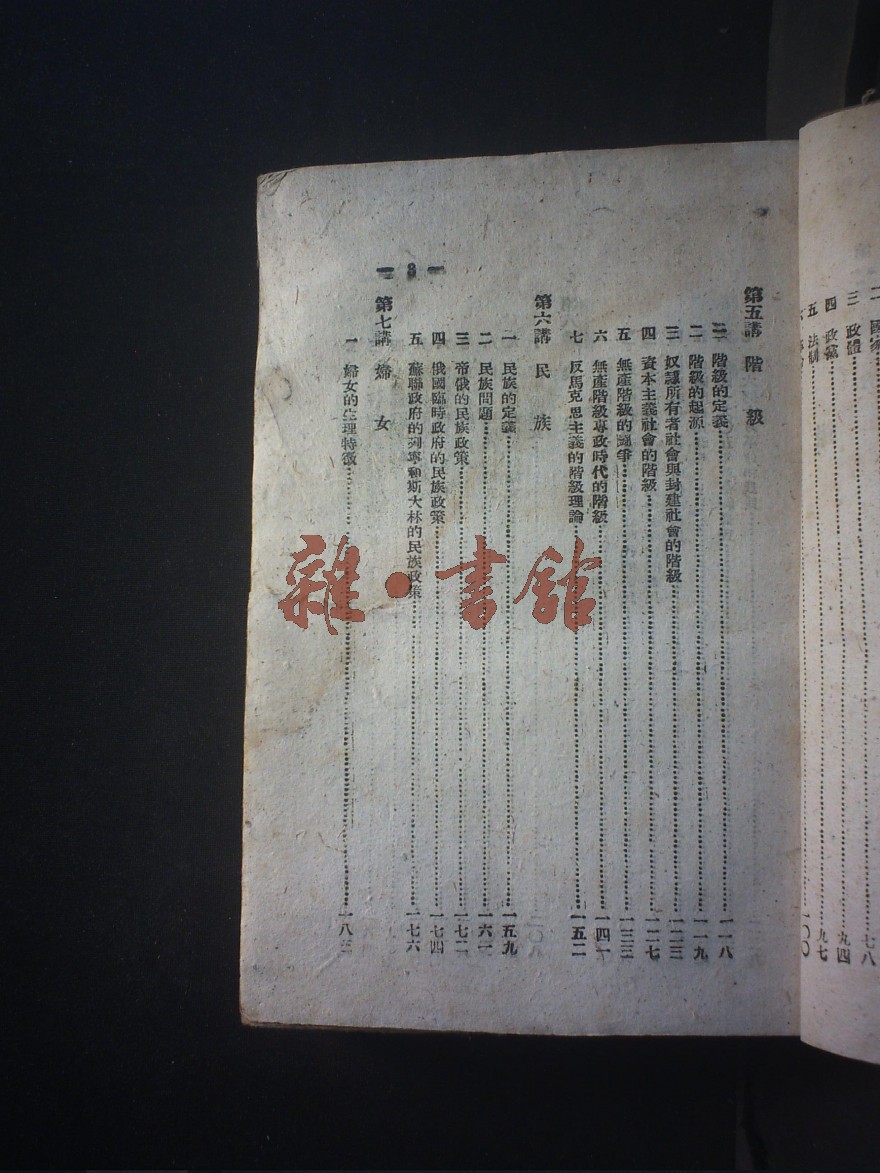 二 國家 七八
三 政體
四 政黨 九四
五 法制 九七
一〇〇
第五講 階級
一 階級的定義 一一八
二 階級的起源 一一九
三 奴隸所有者社會與封建社會的階級 一二三
四 資本主義社會的階級 一二七
五 無產階級的鬪爭 一三三
六 無產階級專政時代的階級 一四一
七 反馬克思主義的階級理論 一五二
第六講 民族
一 民族的定義 一五九
二 民族問題 一六一
三 帝俄的民族政策 一七二
四 俄國臨時政府的民族政策 一七四
五 蘇聯政府的列寧和斯大林的民族政策 一七六
第七講 婦女
一 婦女的生理特徵 一八三
— 3 —
雜·書館